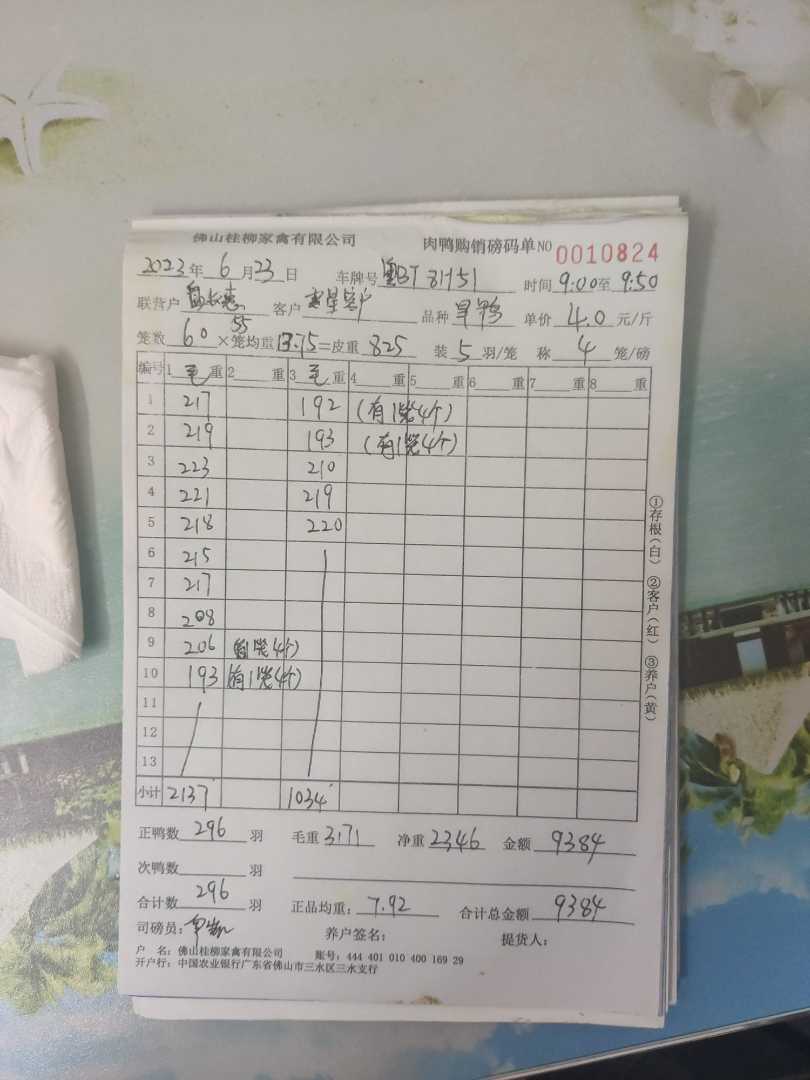 佛山桂柳家禽有限公司 肉鸭购销磅码单 NO 0010824
2023年6月23日 车牌号 BT 81151 时间 9:00至9:50
联营户 客户 客户 品种 旱鸭 单价 4.0 元/斤
55
笼数 60 ×笼均重 13.75=皮重 825 装 5 羽/笼 称 4 笼/磅
编号 1 毛 重 2 重 3 毛 重 4 重 5 重 6 重 7 重 8 重
1 217 192 (有1笼4个)
2 219 193 (有1笼4个)
3 223 210
4 221 219
5 218 220
6 215
7 217
8 208
9 206 笼4个)
10 193 (有1笼4个)
11
12
13
小计 2137 1034
正鸭数 296 羽 毛重 3171 净重 2346 金额 9384
次鸭数 羽
合计数 296 羽 正品均重: 7.92 合计总金额 9384
司磅员: 养户签名: 提货人:
户 名: 佛山桂柳家禽有限公司 账号: 444 401 010 400 169 29
开户行: 中国农业银行广东省佛山市三水区三水支行
①存根(白) ②客户(红) ③养户(黄)